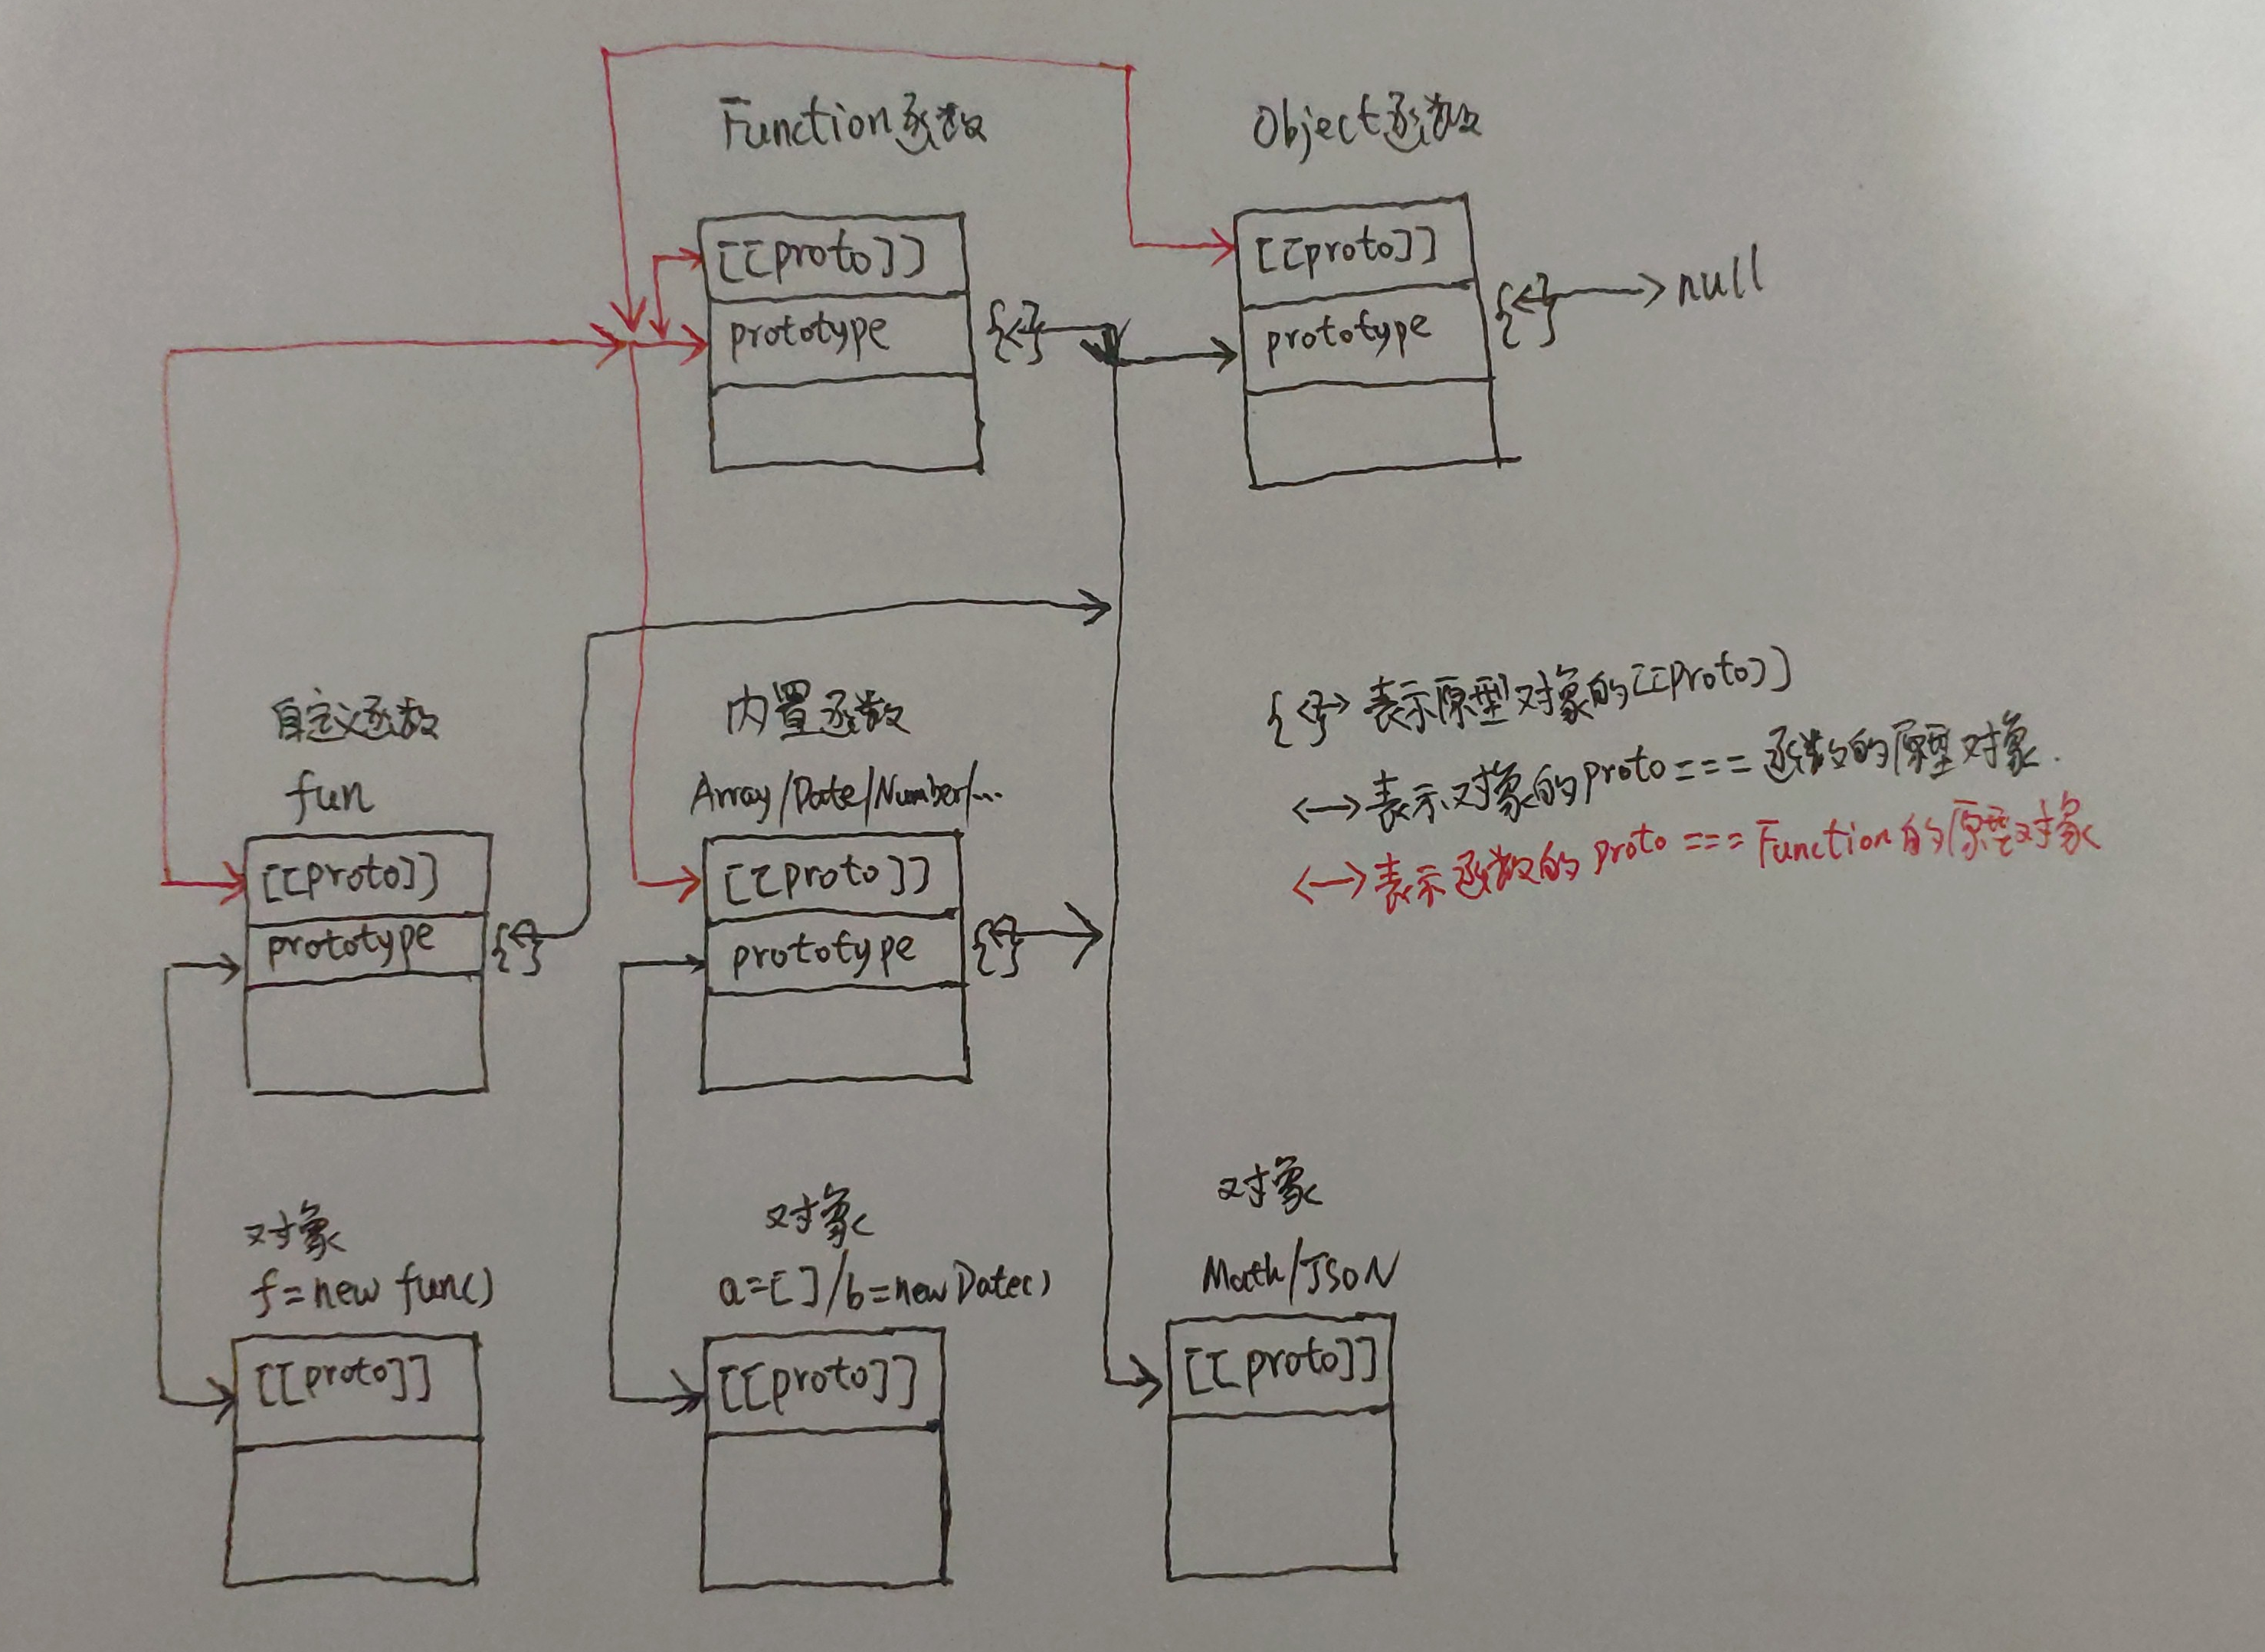 Function函数
Object函数
[[proto]]
prototype
{}
[[proto]]
prototype
{}
null
自定义函数
fun
[[proto]]
prototype
{}
内置函数
Array/Date/Number/...
[[proto]]
prototype
{}
{} 表示原型对象的[[proto]]
<—>表示对象的proto===函数的原型对象.
<—>表示函数的proto===Function的原型对象
对象
f=new fun()
[[proto]]
对象
a=[]/b=new Date()
[[proto]]
对象
Math/JSON
[[proto]]